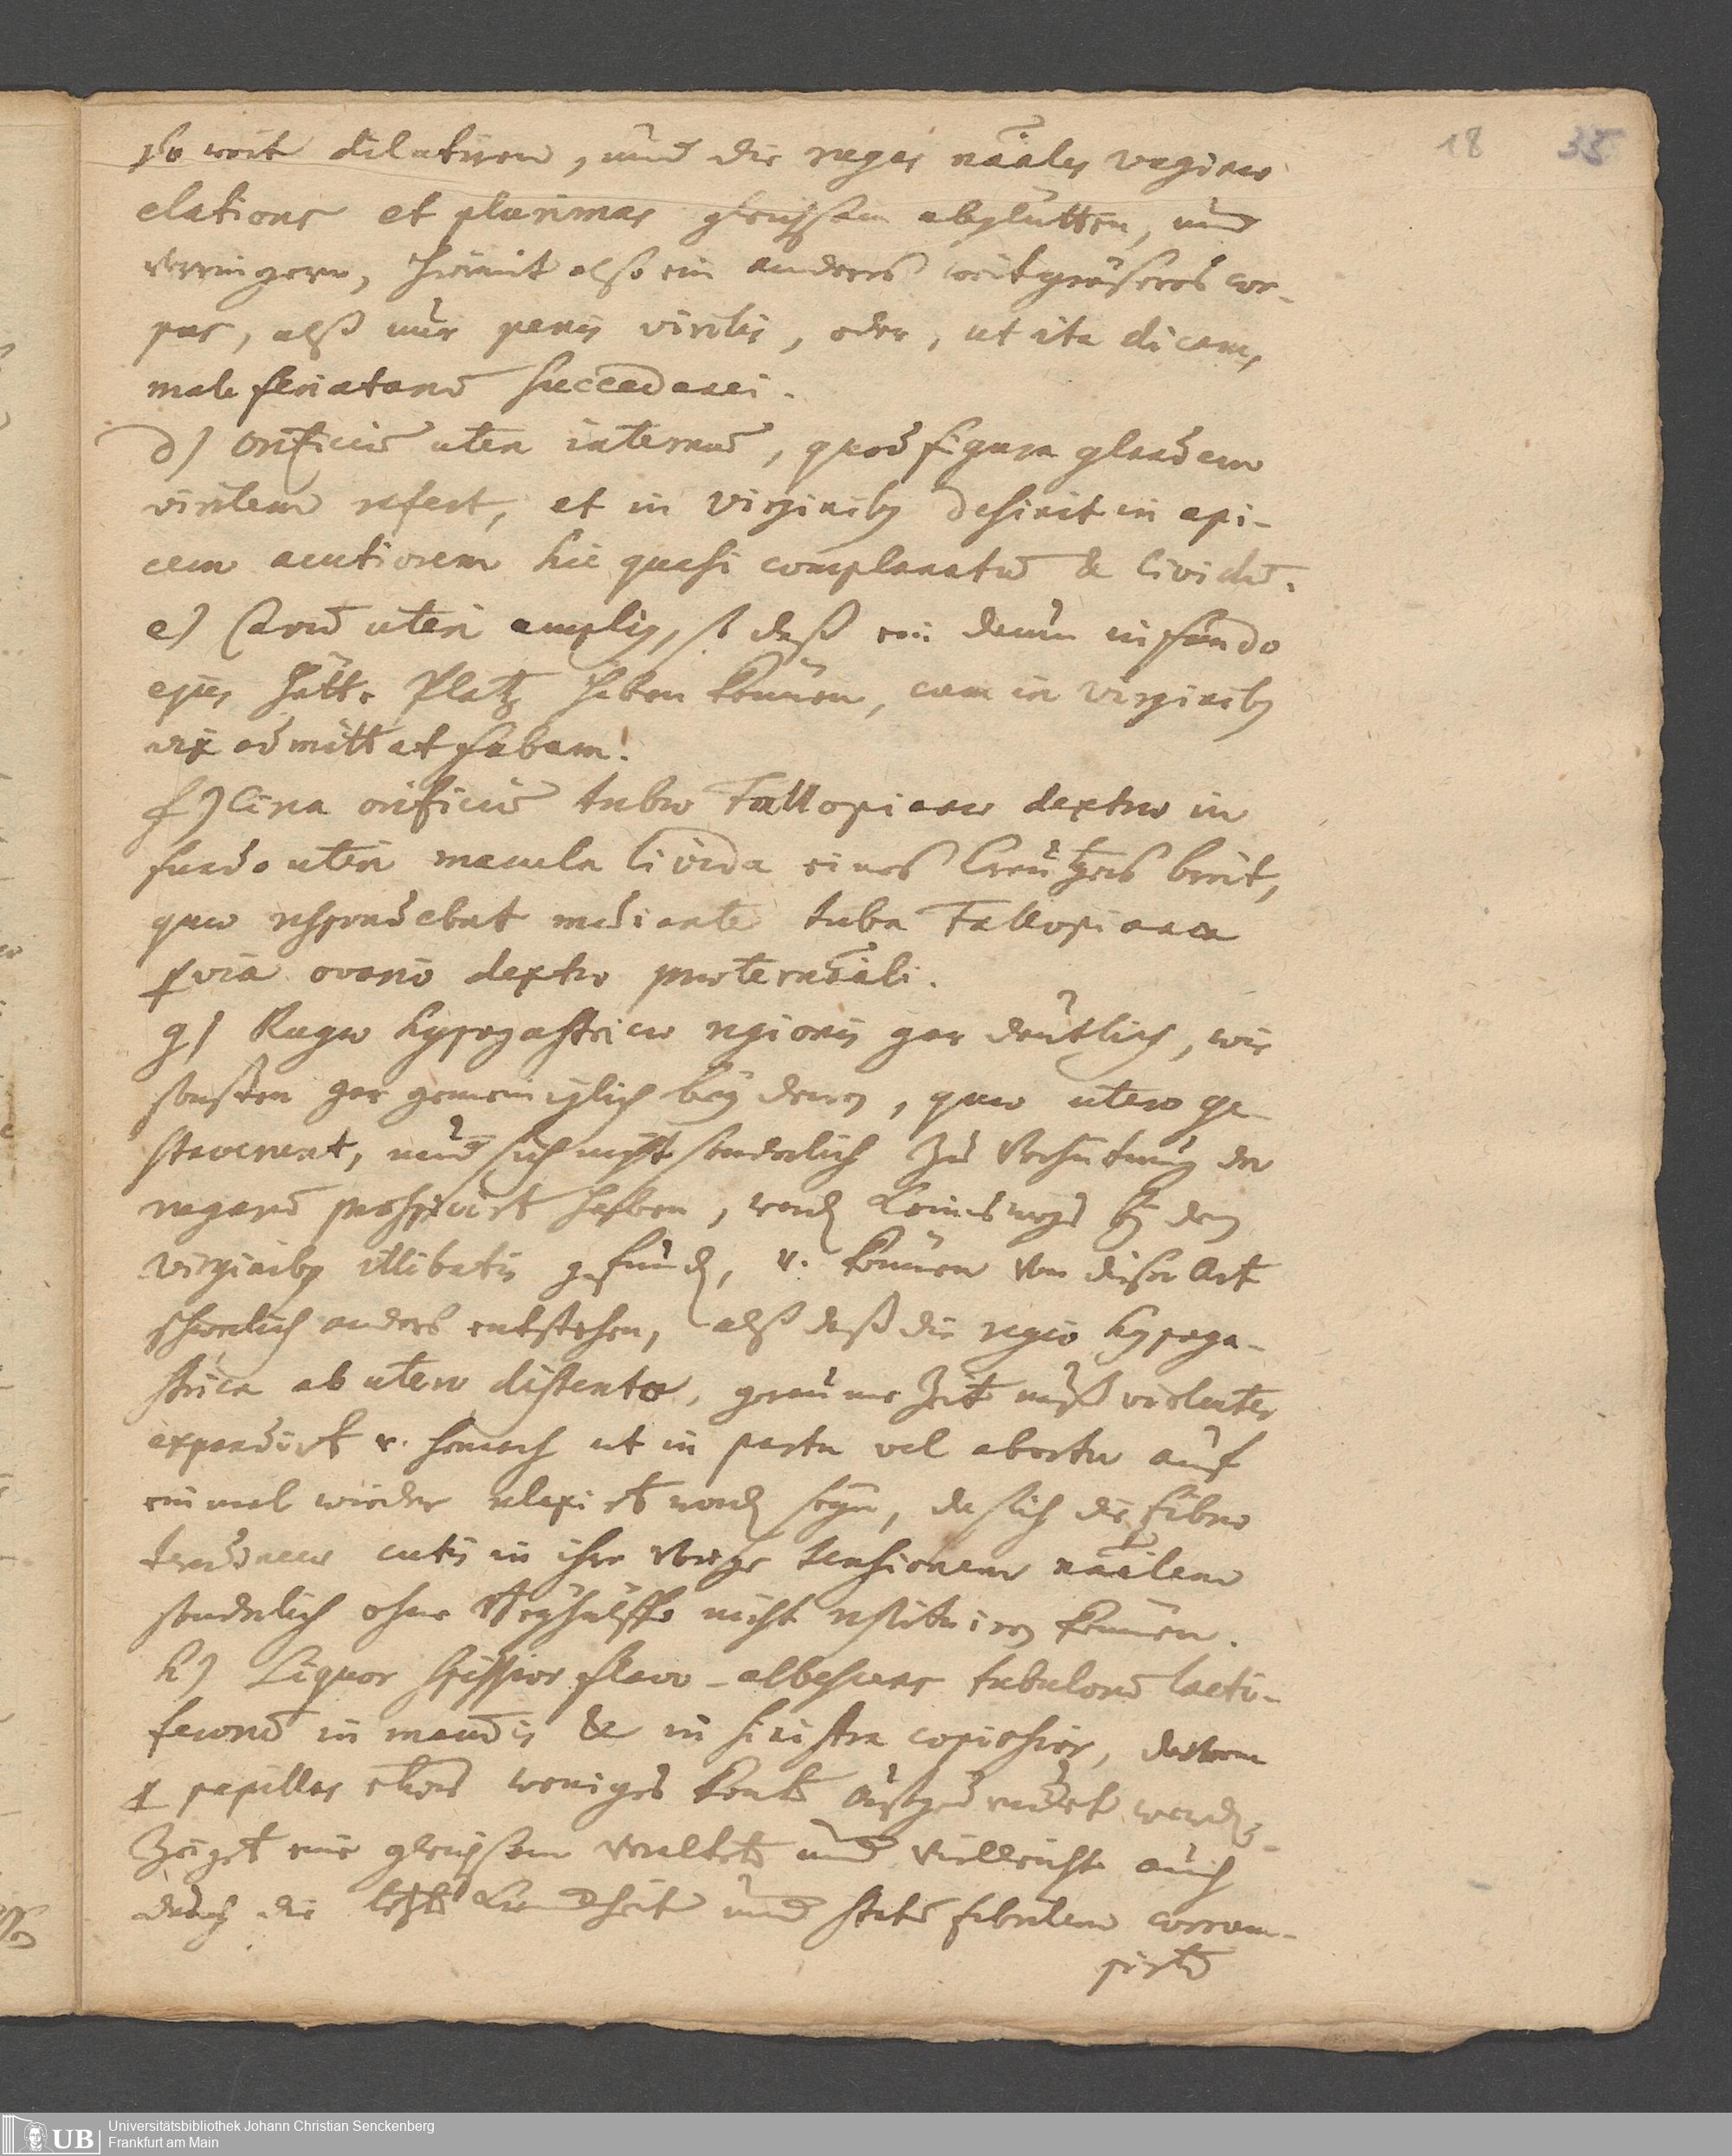 18 35
so weit dilatiren, und die rugas nãales vaginae
elatiores et plurimas gleichsam abglütten, und
verringern, hiemit also ein anderes weitgröseres cor-
pus, alß nur penis virilis, oder, ut ita dicam,
male feriatarum succedanei.
d) Orificiũ uteri internũ, quod figura glandem
virilem refert, et in virginibꝫ desinit in api-
cem acutiorem hic quasi complanatũ & lividũ.
e) Cavũ uteri ampliꝰ, so daß ein daum in fundo
ejus hätte Platz haben können, cum in virginibꝫ
vix admittat fabam.
f) Circa orificiũ tubae Fallopianae dextrae in
fundo uteri macula livida eines Creutzers breit,
quae respondebat mediante tuba Fallopiana
pvia ovario dextro praeternãali.
g) Rugae hypogastricae regionis gar deutlich, wie
sonsten gar gemeiniglich bey denen, quae utero ge-
staverunt, und sich nicht sonderlich zu Verhütung der
rugarũ prospicirt haben, werdē keineswegs bey den
virginibꝫ illibatis gefundē, u. können von dieser Art
schwerlich anders entstehen, alß daß die regio hypoga-
strica ab utero distento, geraume Zeit muß violenter
expandirt u. hernach ut in partu vel abortu auf
einmal wieder relaxirt wordē seyn, da sich die fibrae
tendineae cutis in ihre vorige tensionem nãalem
sonderlich ohne Beyhülffe nicht restituiren können.
h) Liquor spissior flavo-albescens tubulorũ lacti-
ferorũ in mam̃is & in sinistra copiosior, deßen
p papillas etwas weniges konte außgedruckt werdē,
Zeiget eine gleichsam veraltete und vielleicht auch
durch die letzte Kranckheit und statũ febrilem corrum-
pirte
Universitätsbibliothek Johann Christian Senckenberg
Frankfurt am Main
UB